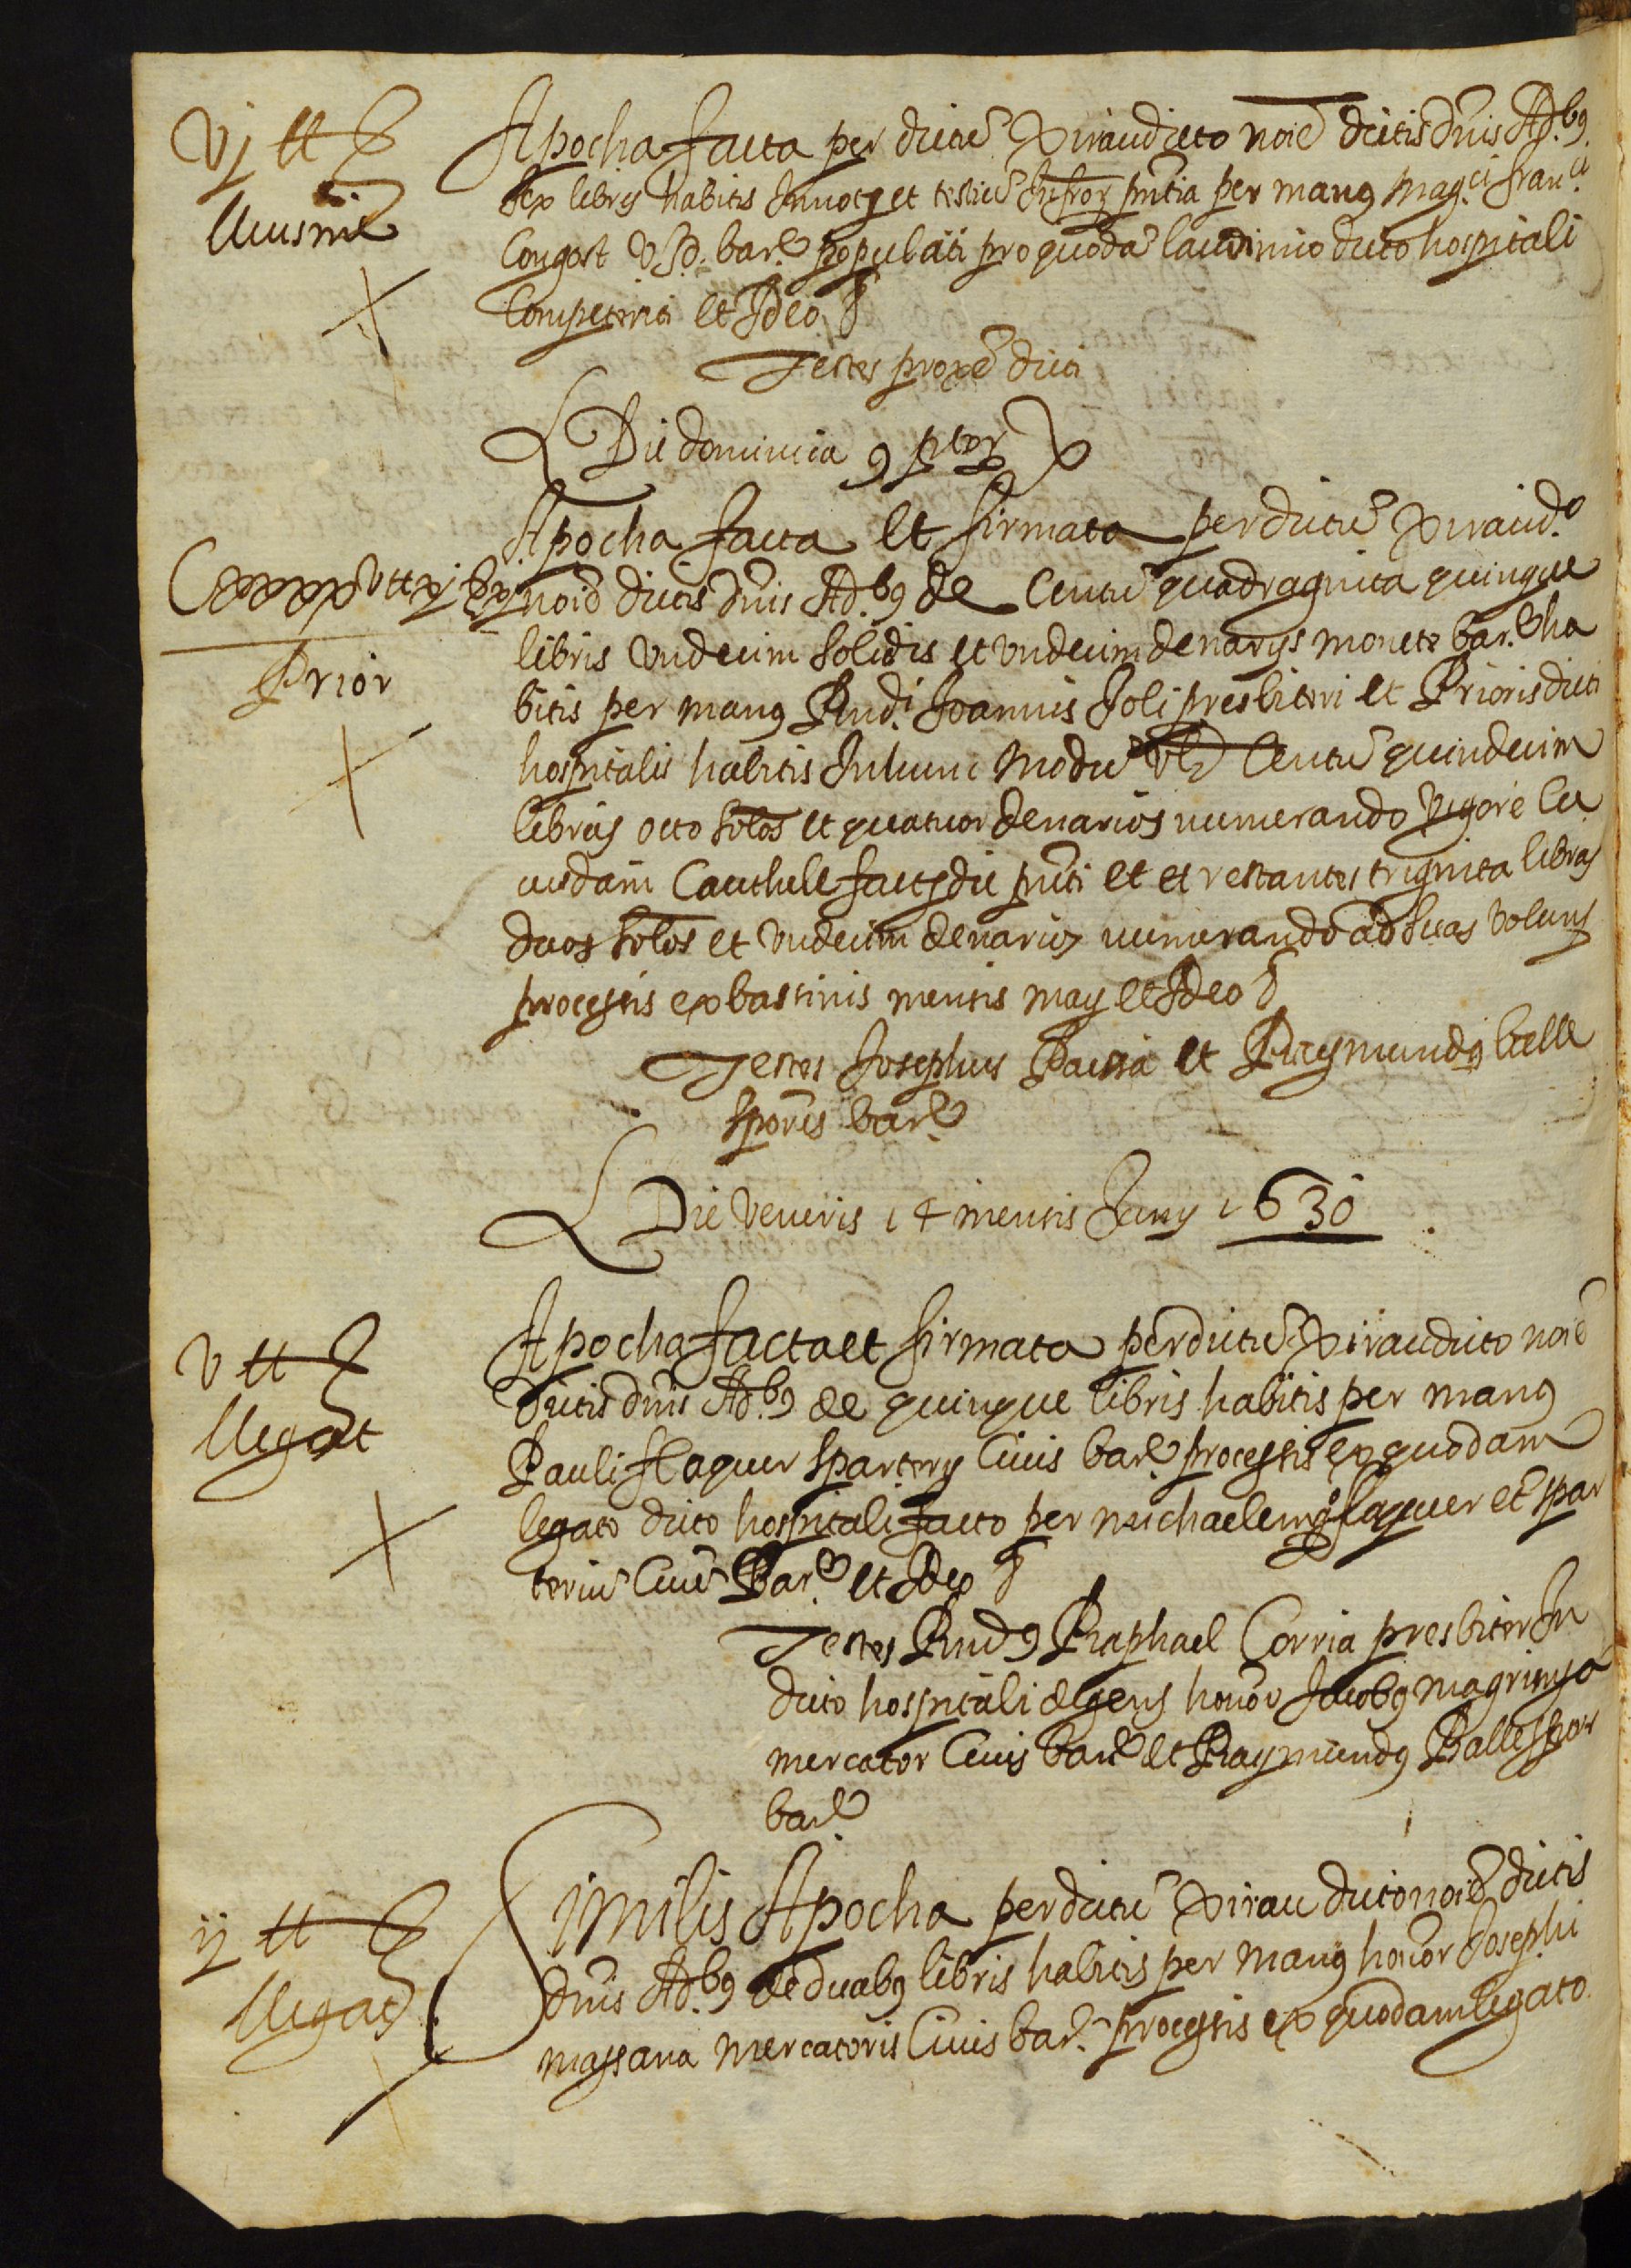 vj ll ʒ
lluisme
Apocha facta per dictũ Xirau dicto noĩe dictis dñis Ad.bꝯ
sex libris habitis In not et testiũ Infror pñtia per manꝯ mag.ci Fran.ci
Congost V.J.D. bar.e populati pro quodã laudimio dicto hospitali
Competenti et Ideo &
Testes proxe dicti
Die dominica 9
Apocha facta et firmata per dictũ Xirau d.o
Cxxxxv ll xj ß xj
Prior
noĩe dictis dñis Ad.bꝯ de Centũ quadraginta quinque
libris undecim solidis et undecim denarijs monete bar.e ha
bitis per manꝯ Rnd.i Joannis Joli presbiteri et Prioris dicti
hospitalis habitis In hunc modũ vlz Centũ quindecim
libras octo solos et quatuor denarios numerando vigore cu
iusdam Cauthele factę die pñti et et restantes triginta libras
duos solos et undecim denarios numerando ad suas voluns
processis ex bassinis mensis maij et Ideo &
Testes Josephus Pauia et Raymundꝯ belle
spores bar.e
Die Veneris 14 mensis Junij 1630
v ll ʒ
llegat
Apocha facta et firmata per dictũ Xirau dicto noĩe
dictis dñis Ad.bꝯ de quinque libris habitis per manꝯ
Pauli flaquer sparterij Ciuis bar.e processis ex quodam
legato dicto hospitali facto per michaelem flaquer et spar
teriũ Ciuẽ Bar.e et Ideo &
Testes Rndꝯ Raphael Corria presbiter In
dicto hospitali degens honor Jacobꝯ magrinya
mercator Ciuis bar.e et Raymundꝯ Balle spor
bar.e
ij ll ʒ
llegat
Similis Apocha per dictũ Xirau dicto noĩe dictis
dñis Ad.bꝯ de duabꝯ libris habitis per manꝯ honor Josephi
massana mercatoris Ciuis bar.e processis ex quodam legato